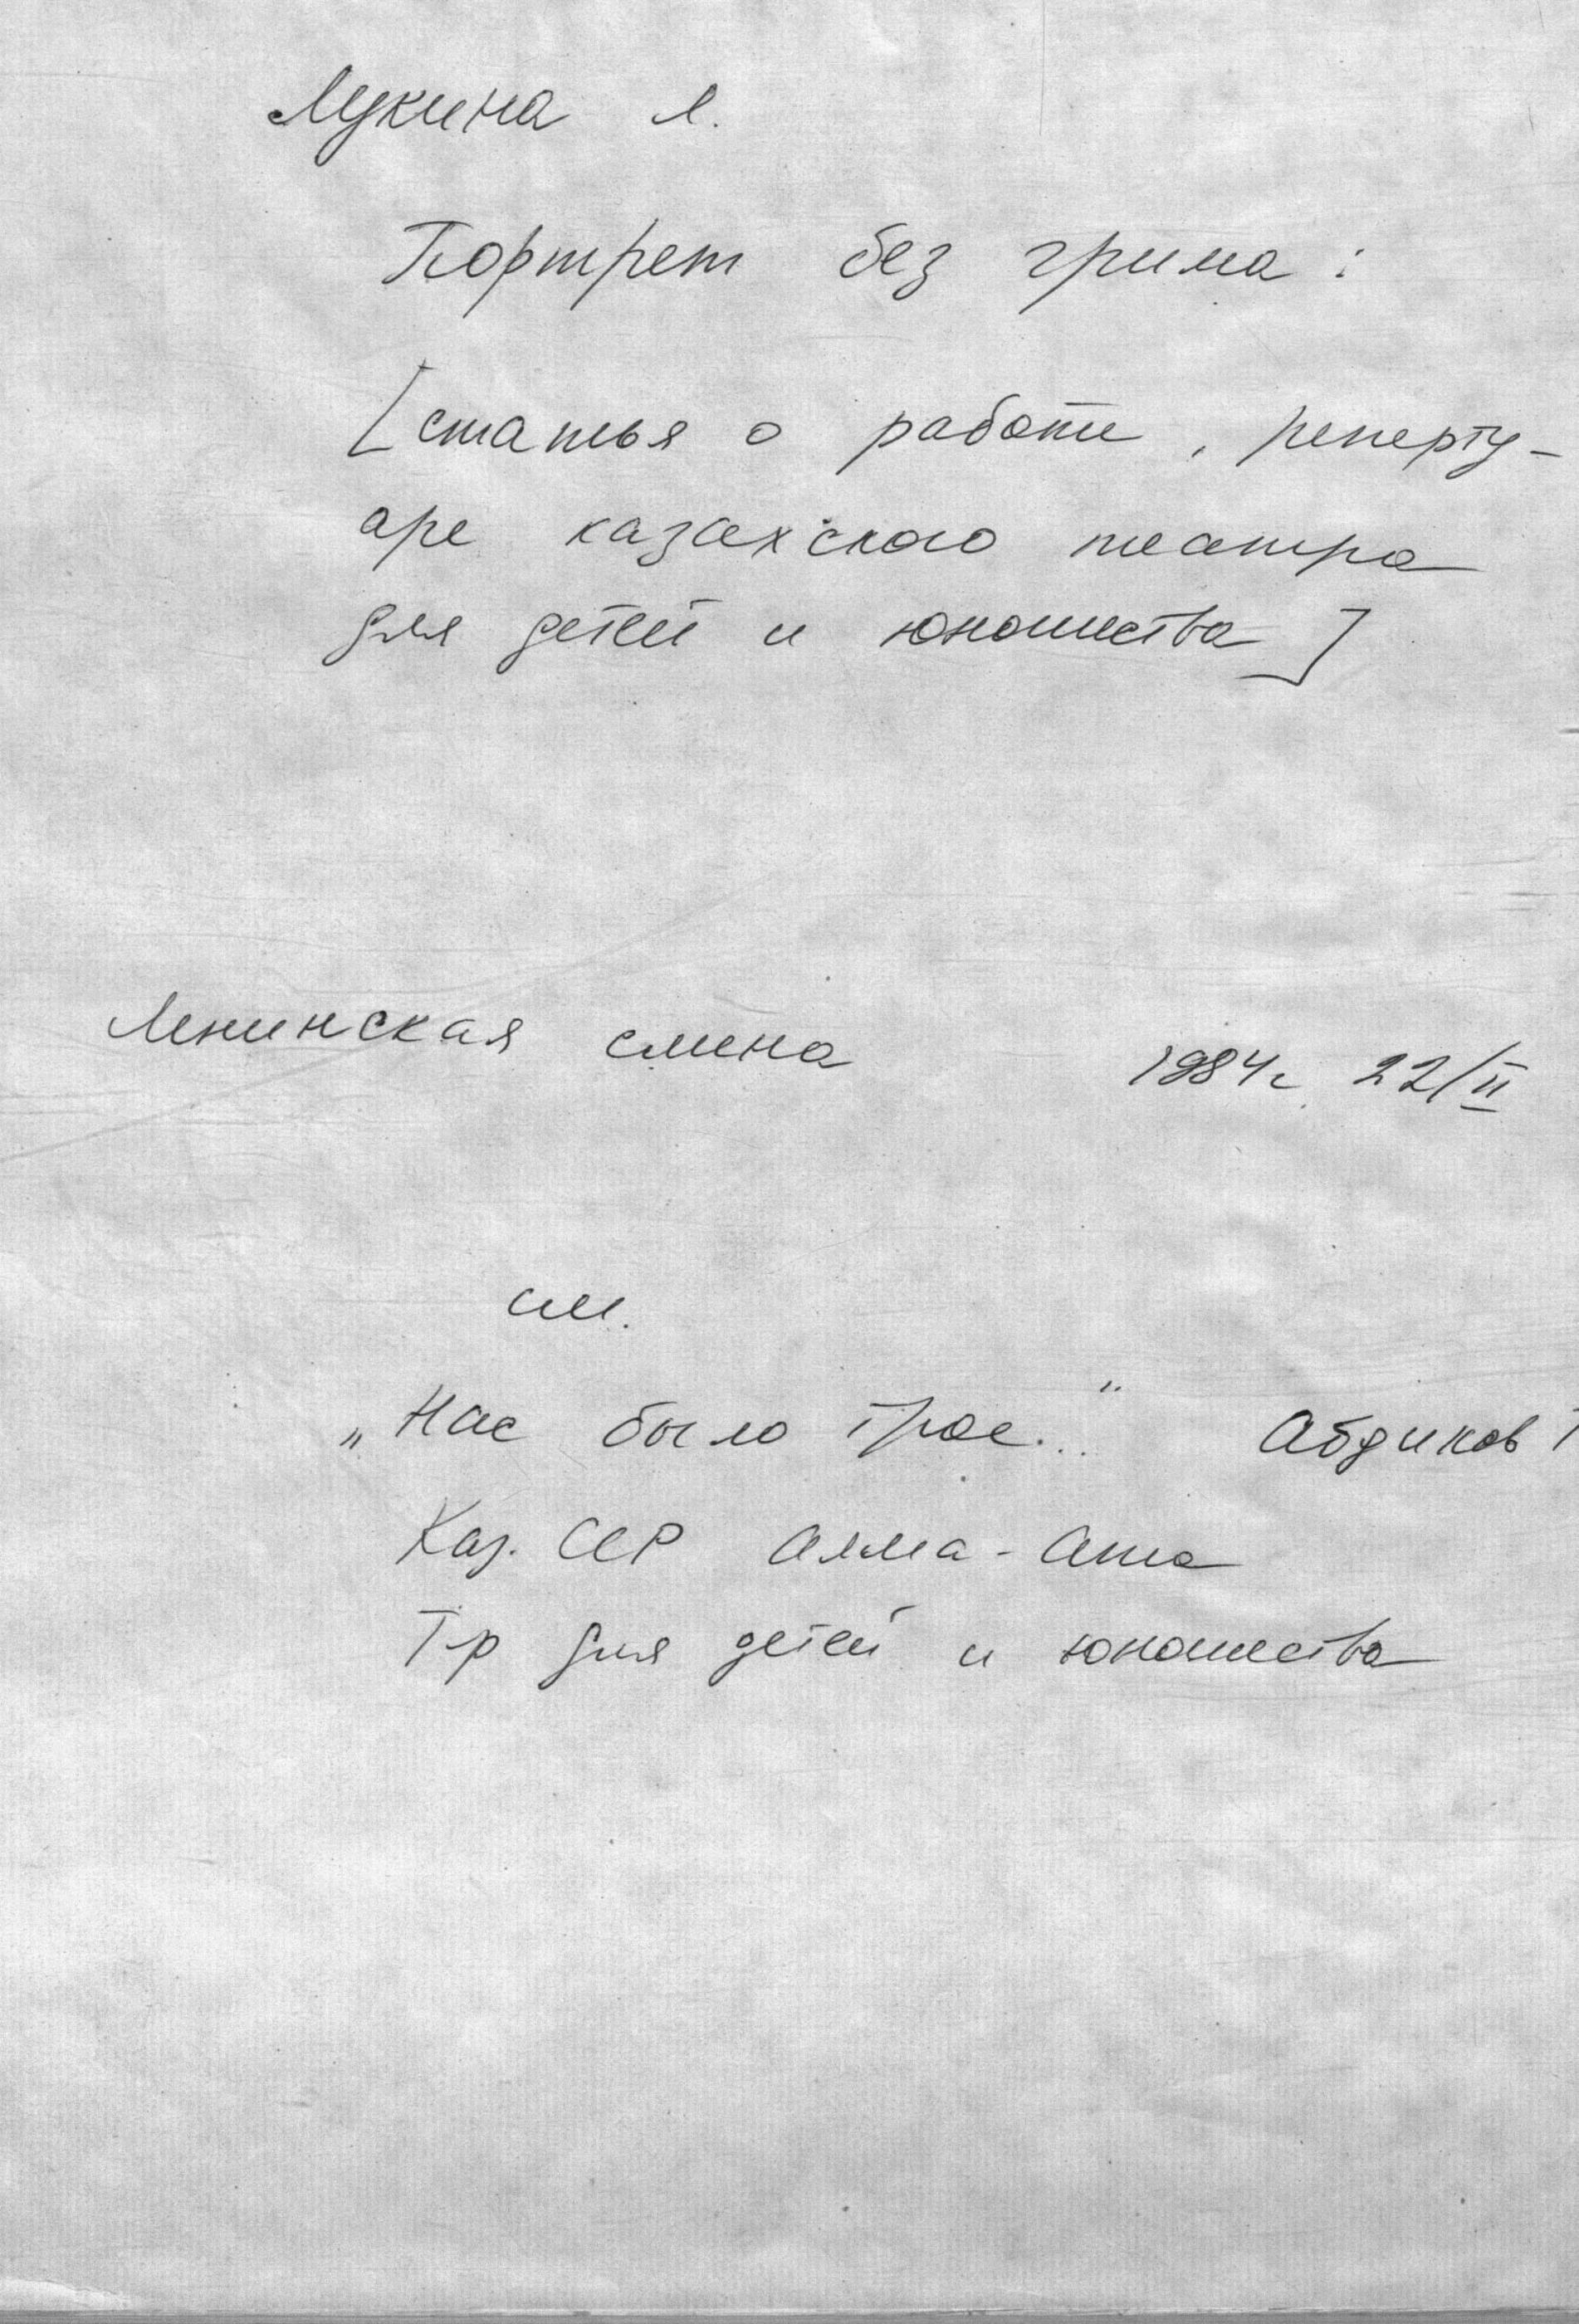 Лукина Л.
Портрет без грима:
[статья о работе, реперту-
аре казахского театра
для детей и юношества]
Ленинская смена 1984г. 22/II
см.
„Нас было трое..." Абдиков Т
Каз. ССР Алма-Ата
Т-р для детей и юношества